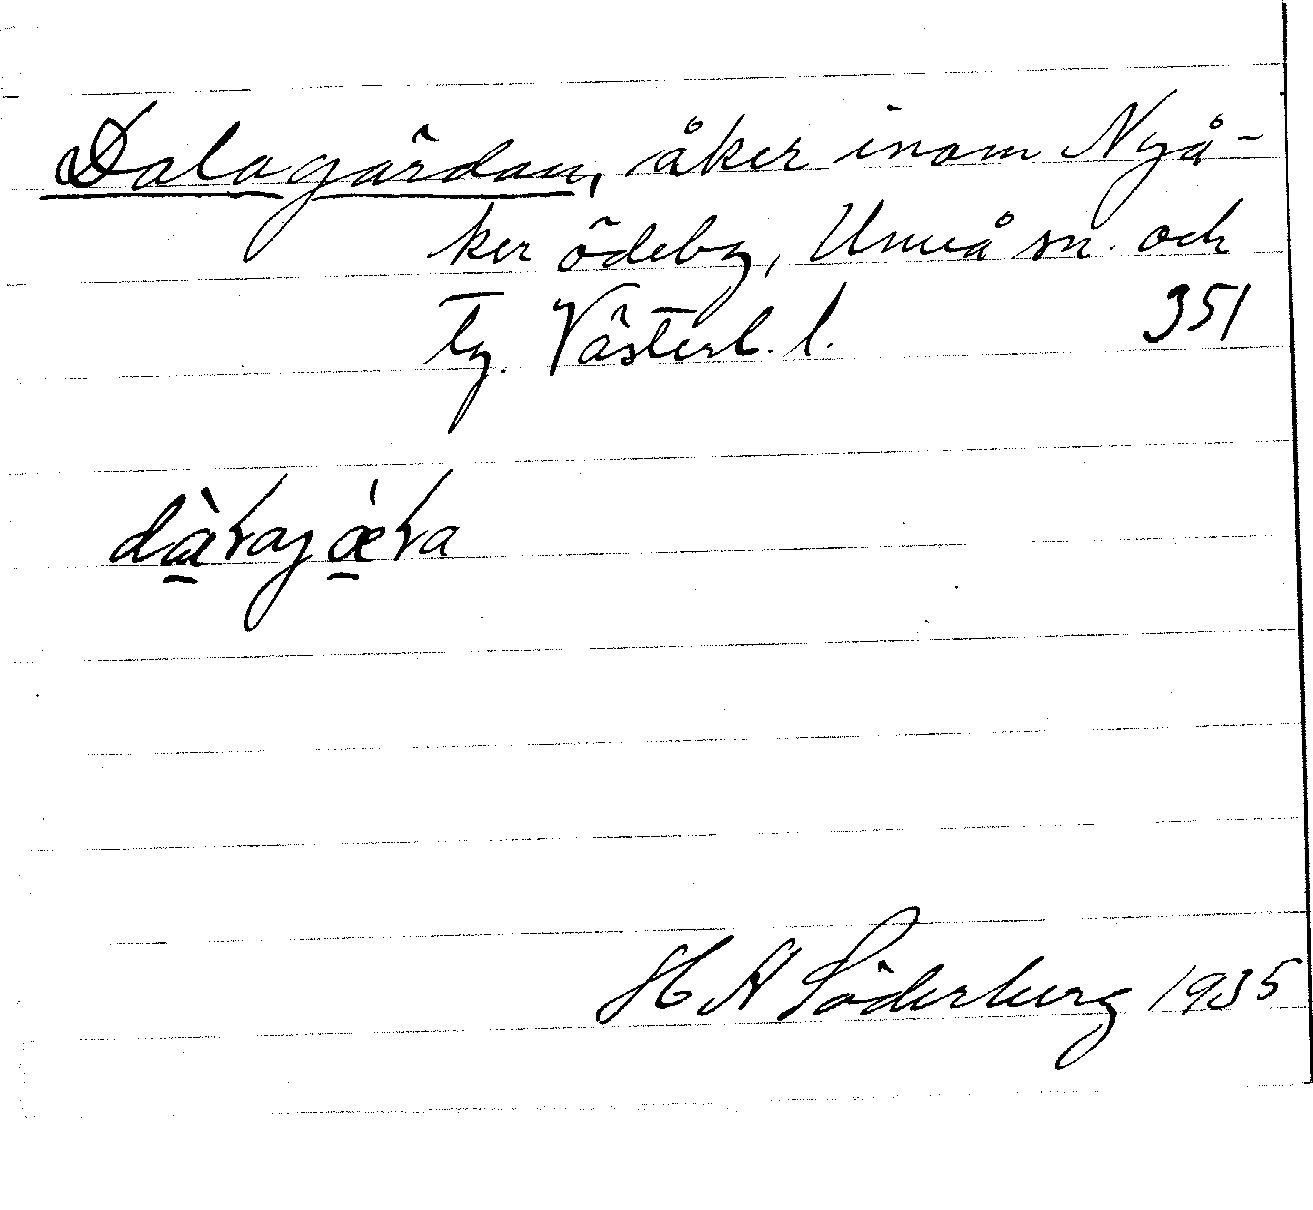 Dalagärdan, åker inom Nyå-
ker ödeby, Umeå sn. och
tg. Västerb. l. 351
H A Söderberg 1935